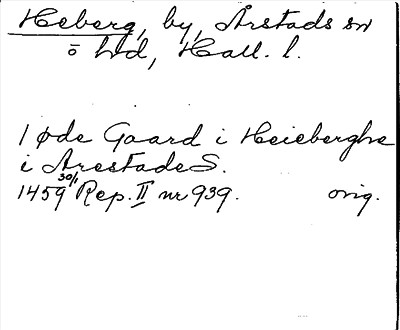 Heberg, by, Årstads sn
o hd, Hall. l.
1 øde Gaard i Heieberghe
i Arestade S.
1459 30/1 Rep. II nr 939. orig.